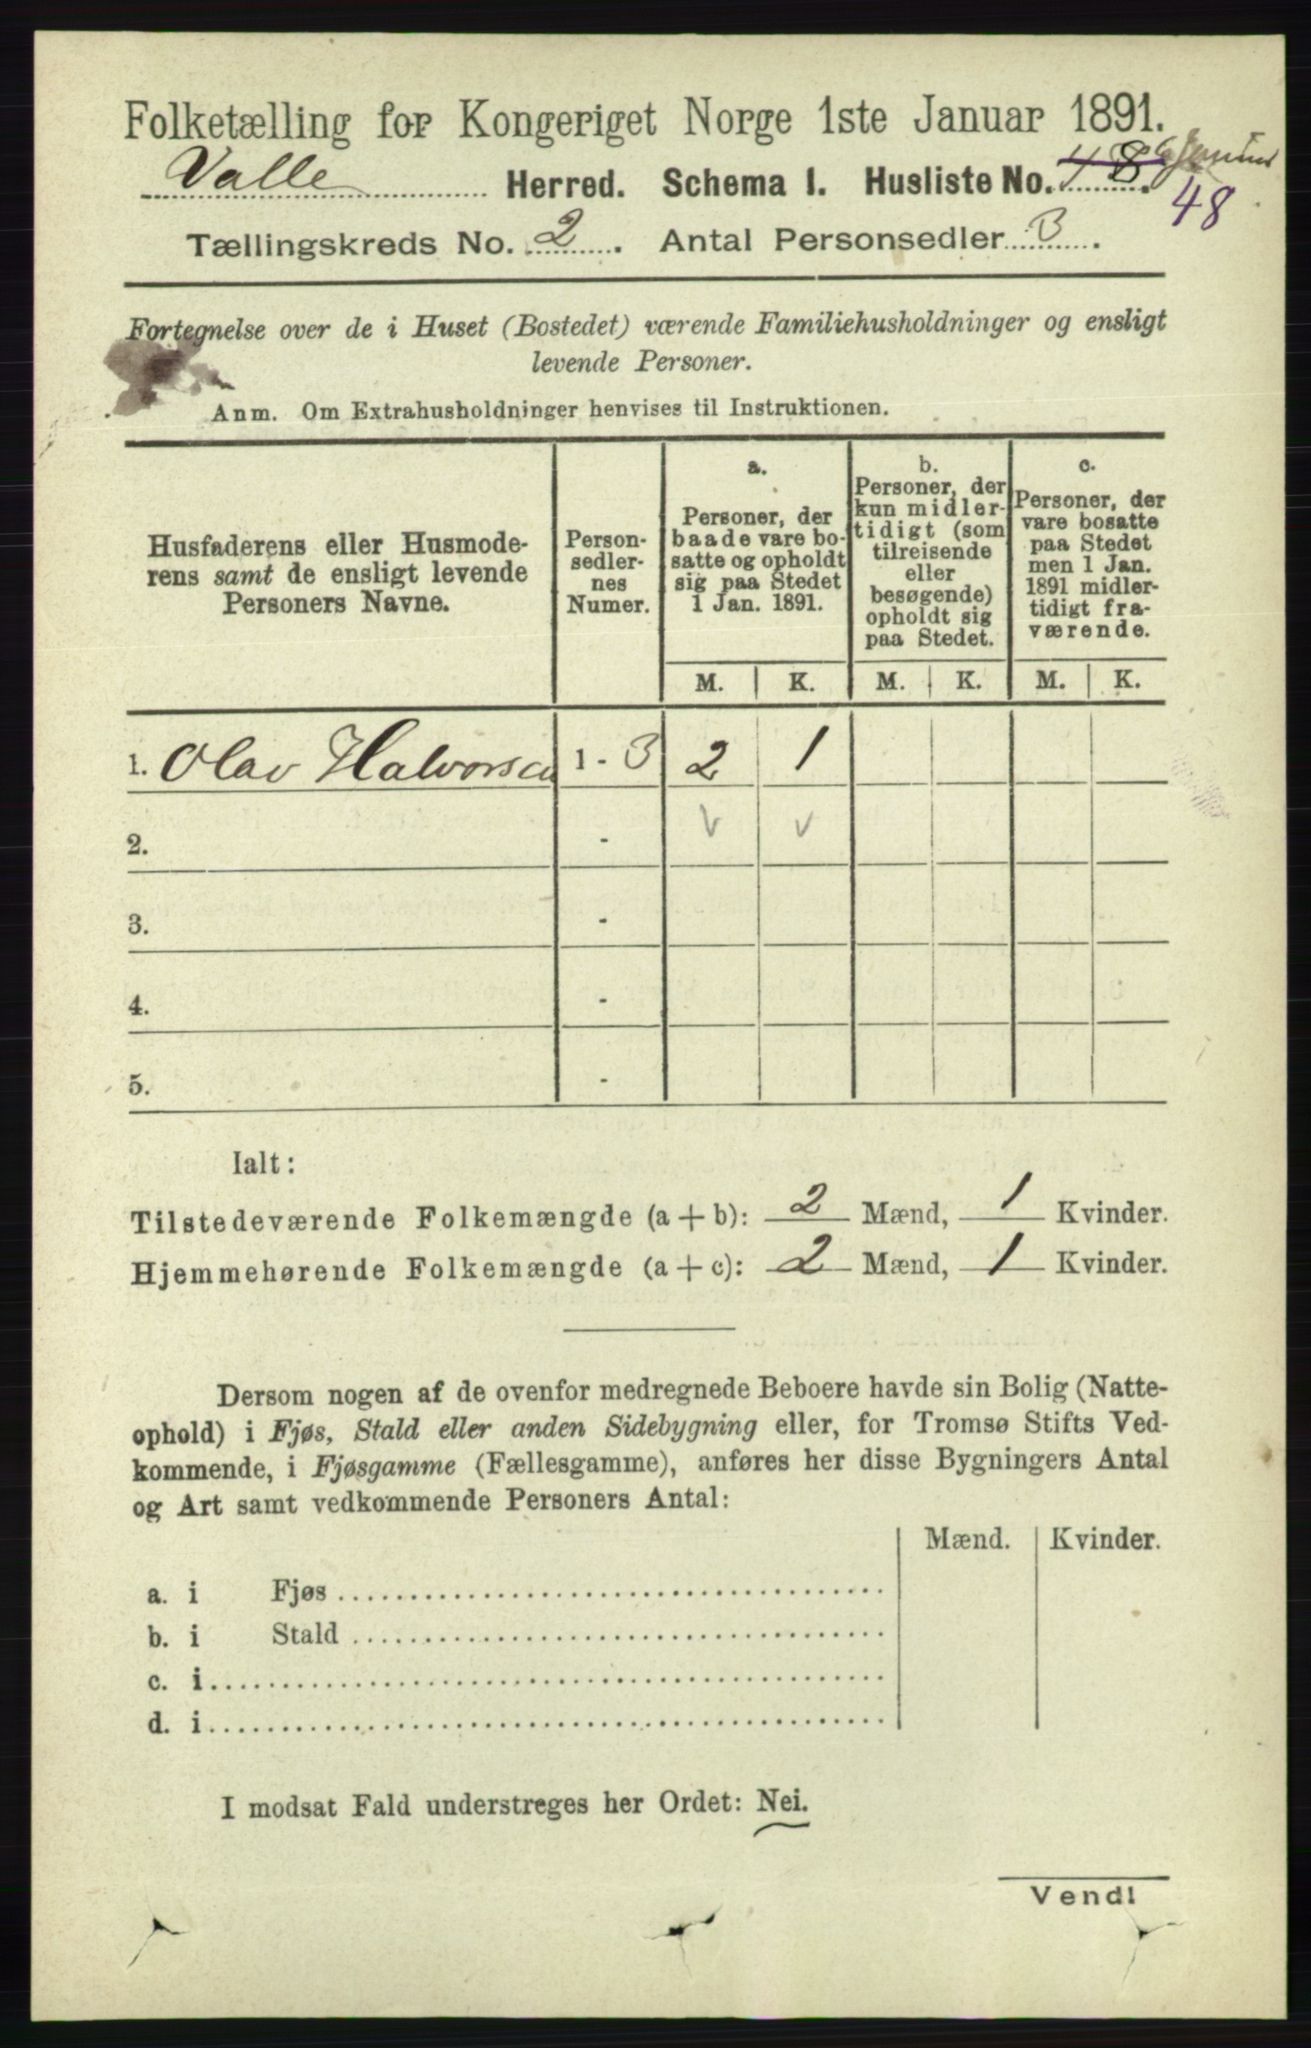 Folketælling for Kongeriget Norge 1ste Januar 1891.
Valle Herred. Schema I. Husliste No. 48
48
Tællingskreds No. 2. Antal Personsedler 3.
Fortegnelse over de i Huset (Bostedet) værende Familiehusholdninger og ensligt
levende Personer.
Anm. Om Extrahusholdninger henvises til Instruktionen.
Husfaderens eller Husmode-
rens samt de ensligt levende
Personers Navne.
Person-
sedler-
nes
Numer.
a.
Personer, der
baade vare bo-
satte og opholdt
sig paa Stedet
1 Jan. 1891.
b.
Personer, der
kun midler-
tidigt (som
tilreisende
eller
besøgende)
opholdt sig
paa Stedet.
c.
Personer, der
vare bosatte
paa Stedet
men 1 Jan.
1891 midler-
tidigt fra-
værende.
M. K. M. K. M. K.
1. Olav Halvorsen 1 - 3 2 1
2. - v v
3. -
4. -
5. -
Ialt:
Tilstedeværende Folkemængde (a + b): 2 Mænd, 1 Kvinder.
Hjemmehørende Folkemængde (a + c): 2 Mænd, 1 Kvinder.
Dersom nogen af de ovenfor medregnede Beboere havde sin Bolig (Natte-
ophold) i Fjøs, Stald eller anden Sidebygning eller, for Tromsø Stifts Ved-
kommende, i Fjøsgamme (Fællesgamme), anføres her disse Bygningers Antal
og Art samt vedkommende Personers Antal:
Mænd. Kvinder.
a. i Fjøs
b. i Stald
c. i
d. i
I modsat Fald understreges her Ordet: Nei.
Vend!